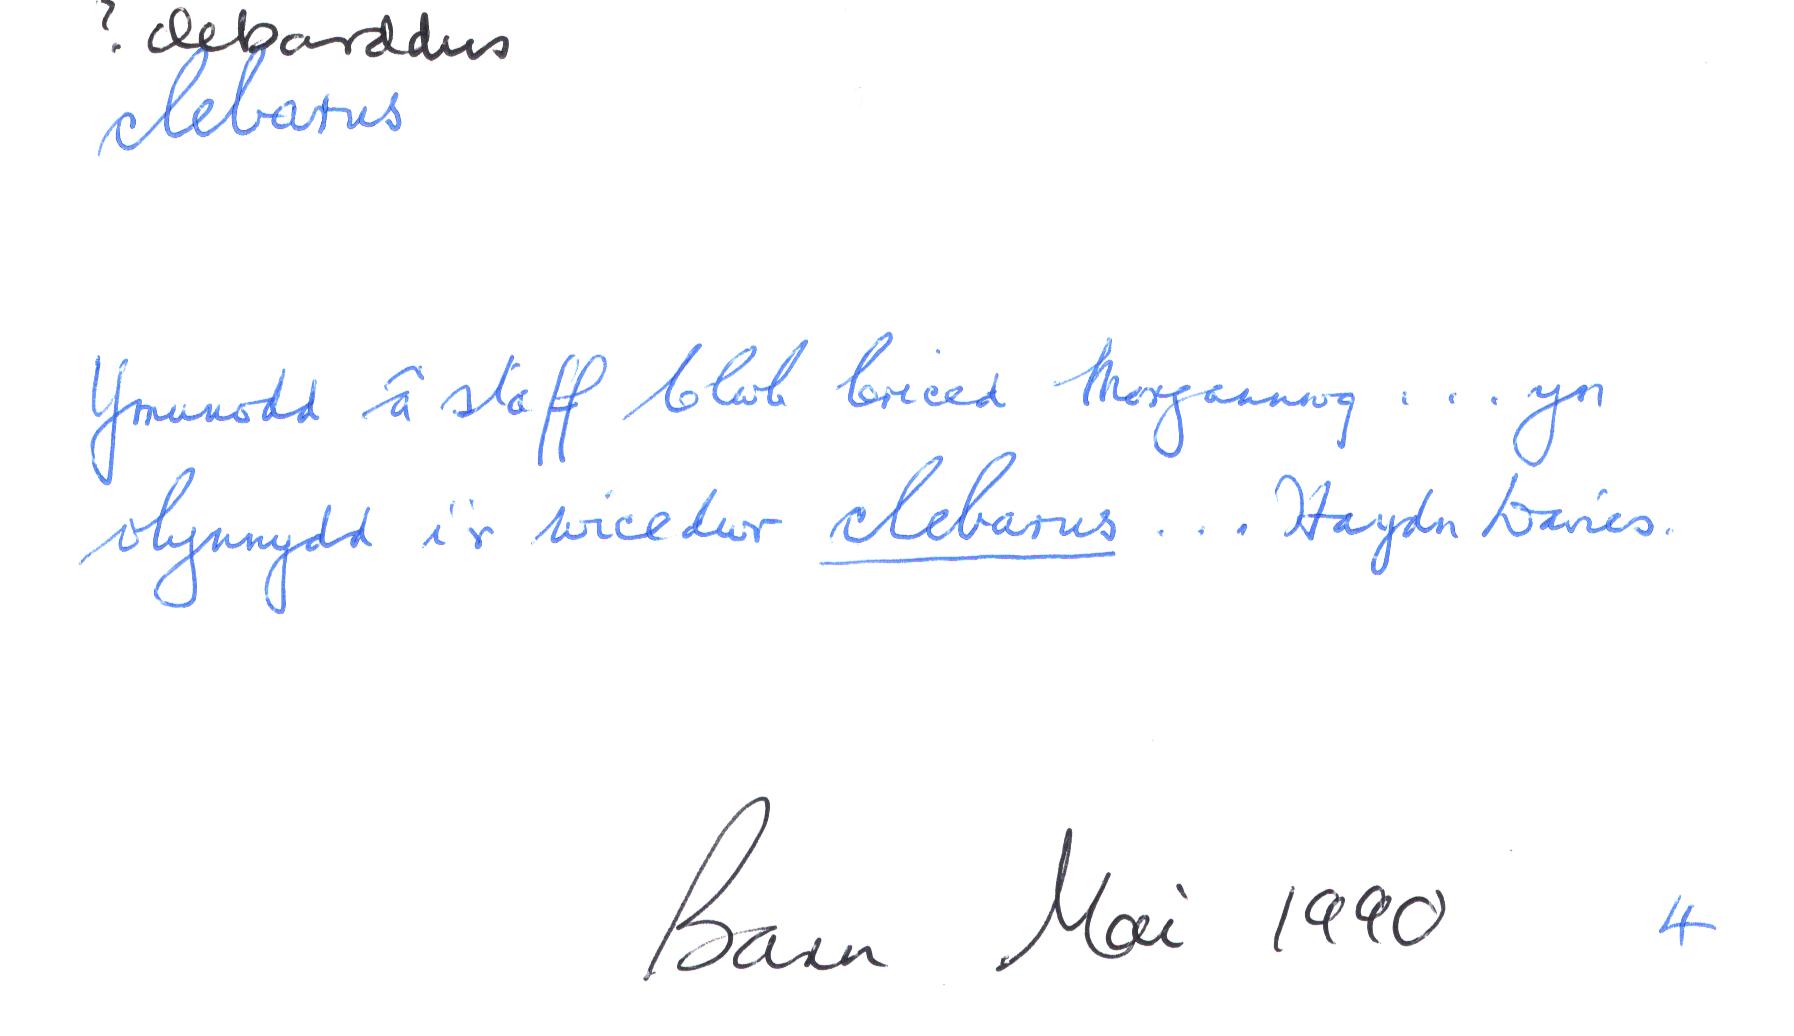 ? clebarddus
clebarus
Ymunodd â staff Clwb Criced Morgannwg . . . yn
olynydd i'r wicedwr clebarus . . . Haydn Davies.
Barn Mai 1990 4